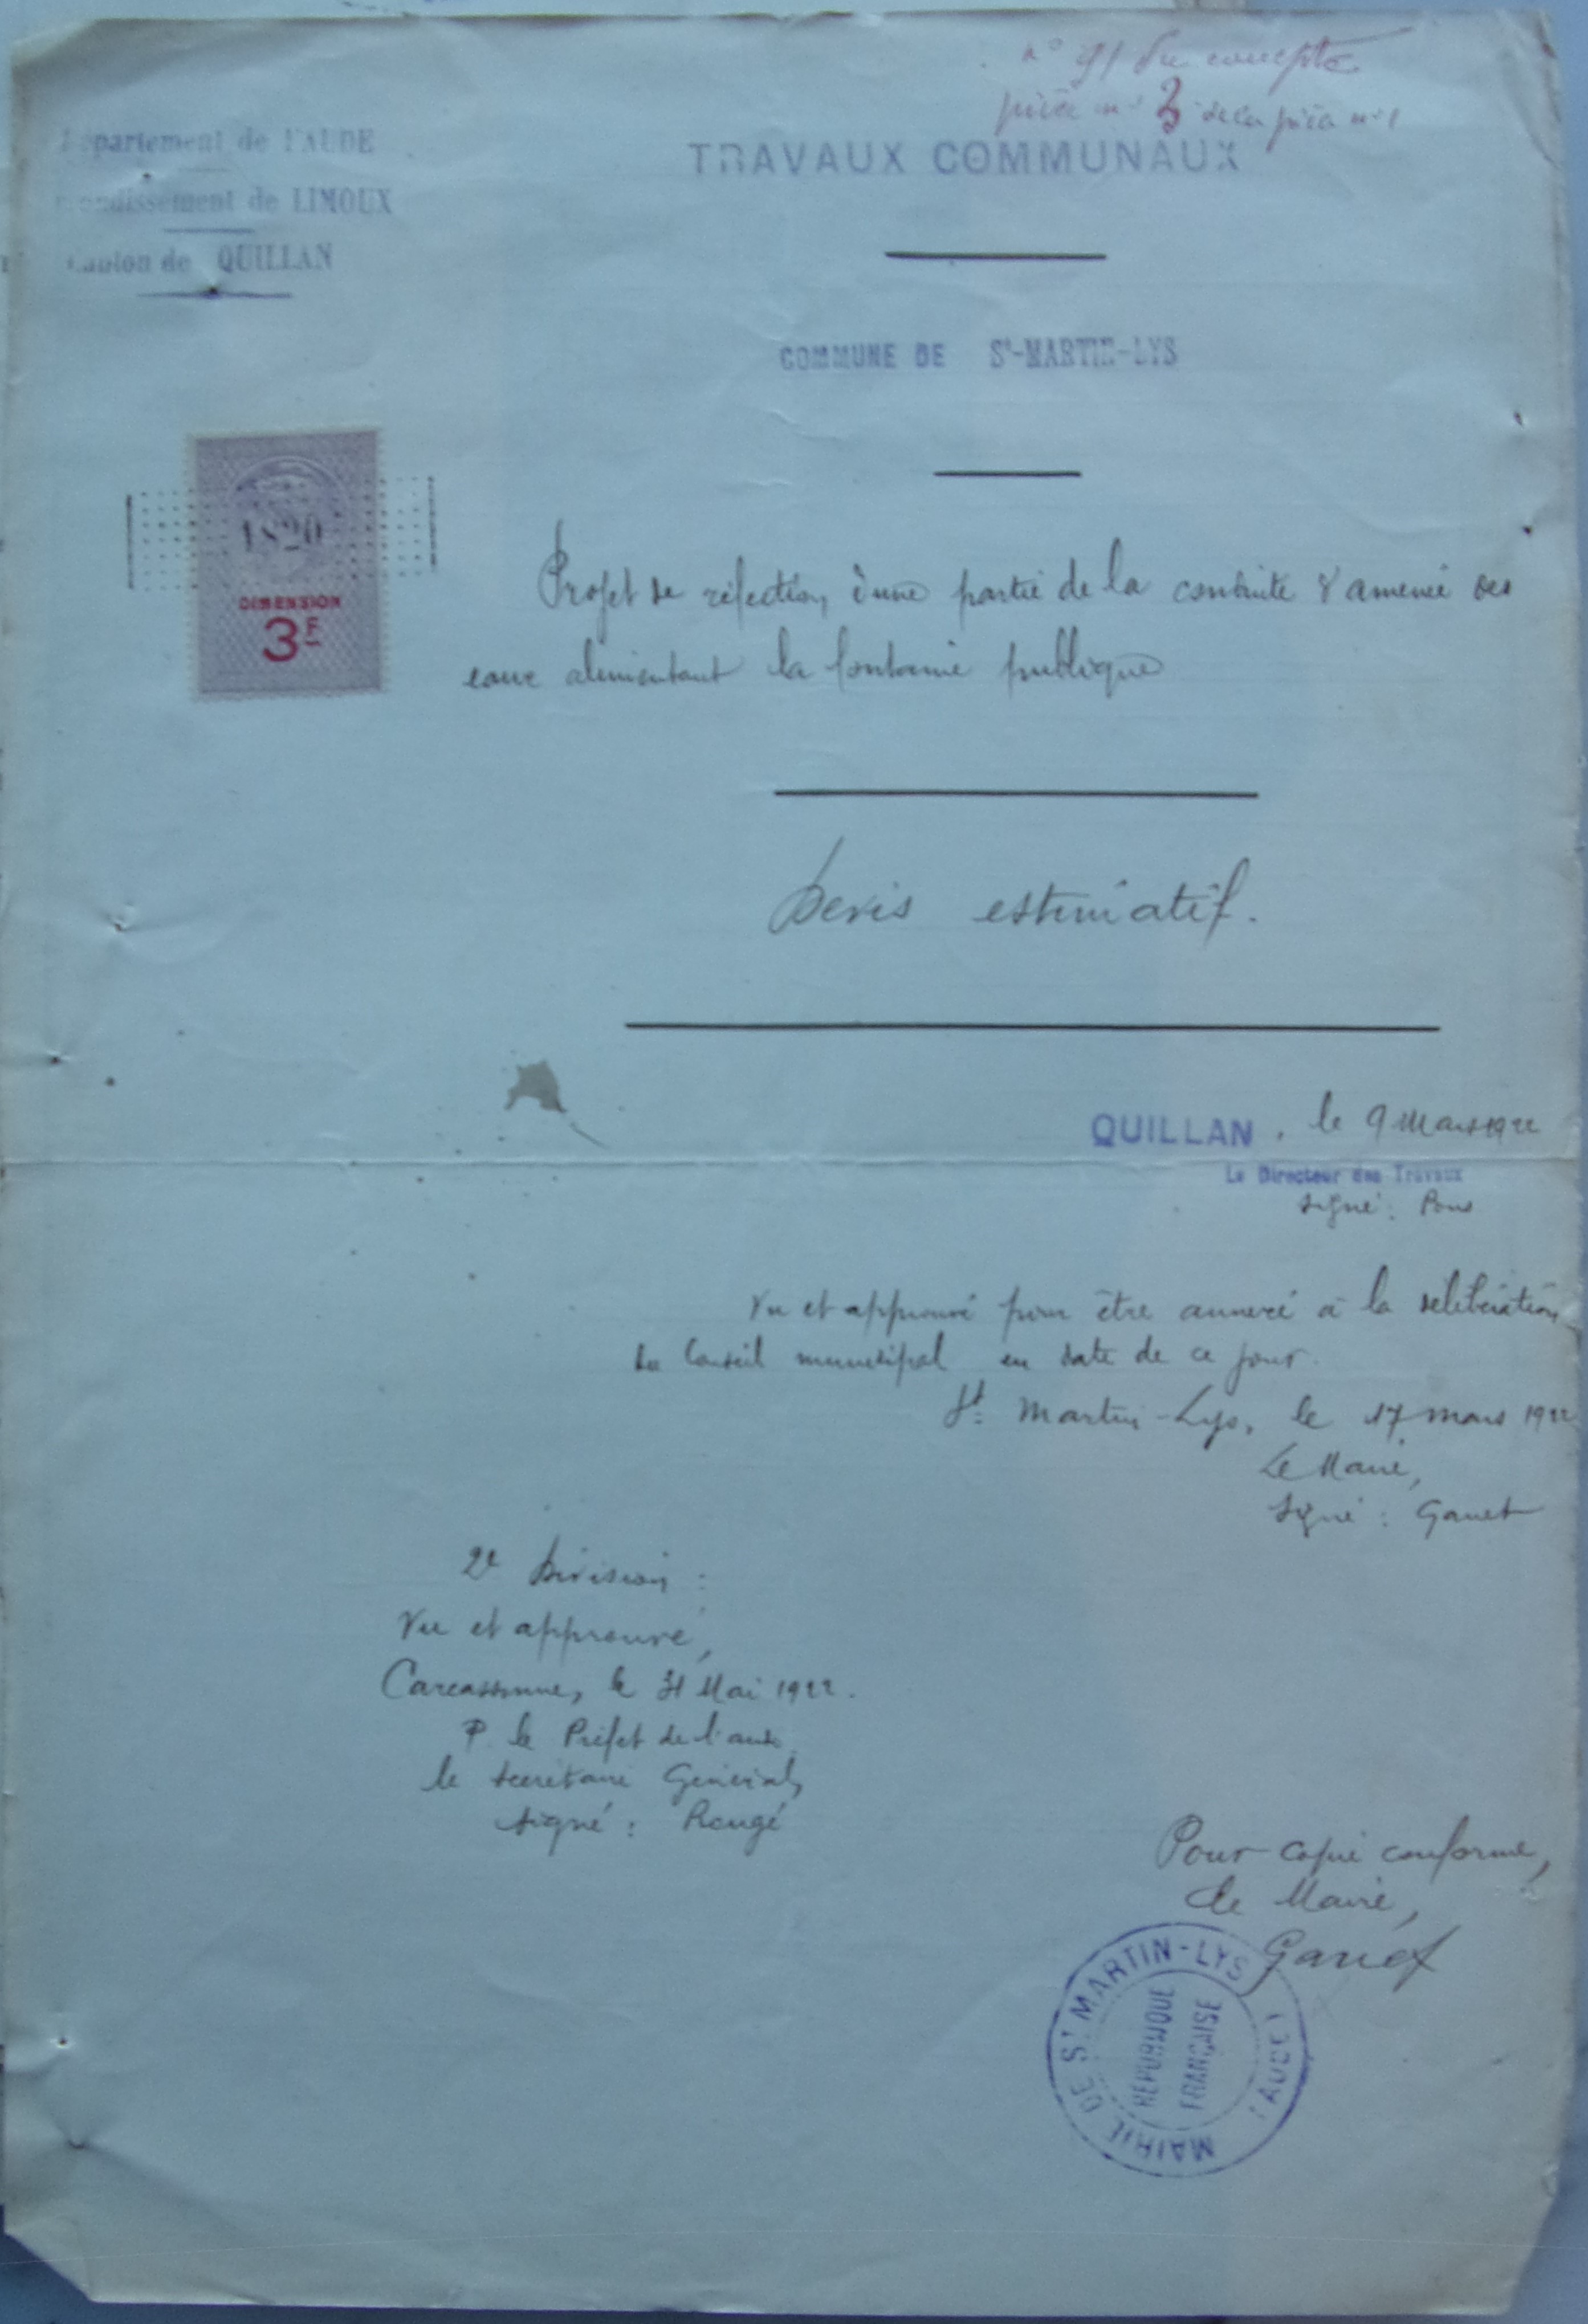 n° 91 du compte
pièce n° 3 de la pièce n° 1
Département de l'AUDE
Arrondissement de LIMOUX
Canton de QUILLAN
TRAVAUX COMMUNAUX
COMMUNE DE St-MARTIN-LYS
1820
DIMENSION
3F
Projet de réfection d'une partie de la conduite d'amenée des
eaux alimentant la fontaine publique
Devis estimatif.
QUILLAN, le 9 Mars 1922
Le Directeur des Travaux
signé: Pons
Vu et approuvé pour être annexé à la délibération
du Conseil municipal en date de ce jour.
St Martin-Lys, le 17 mars 1922
Le Maire,
signé : Ganet
2e Division :
Vu et approuvé,
Carcassonne, le 31 Mai 1922.
P. le Préfet de l'aude
le secrétaire Général,
signé : Rougé
Pour copie conforme,
Le Maire,
Ganet
MAIRIE DE St MARTIN-LYS
(AUDE)
REPUBLIQUE
FRANÇAISE